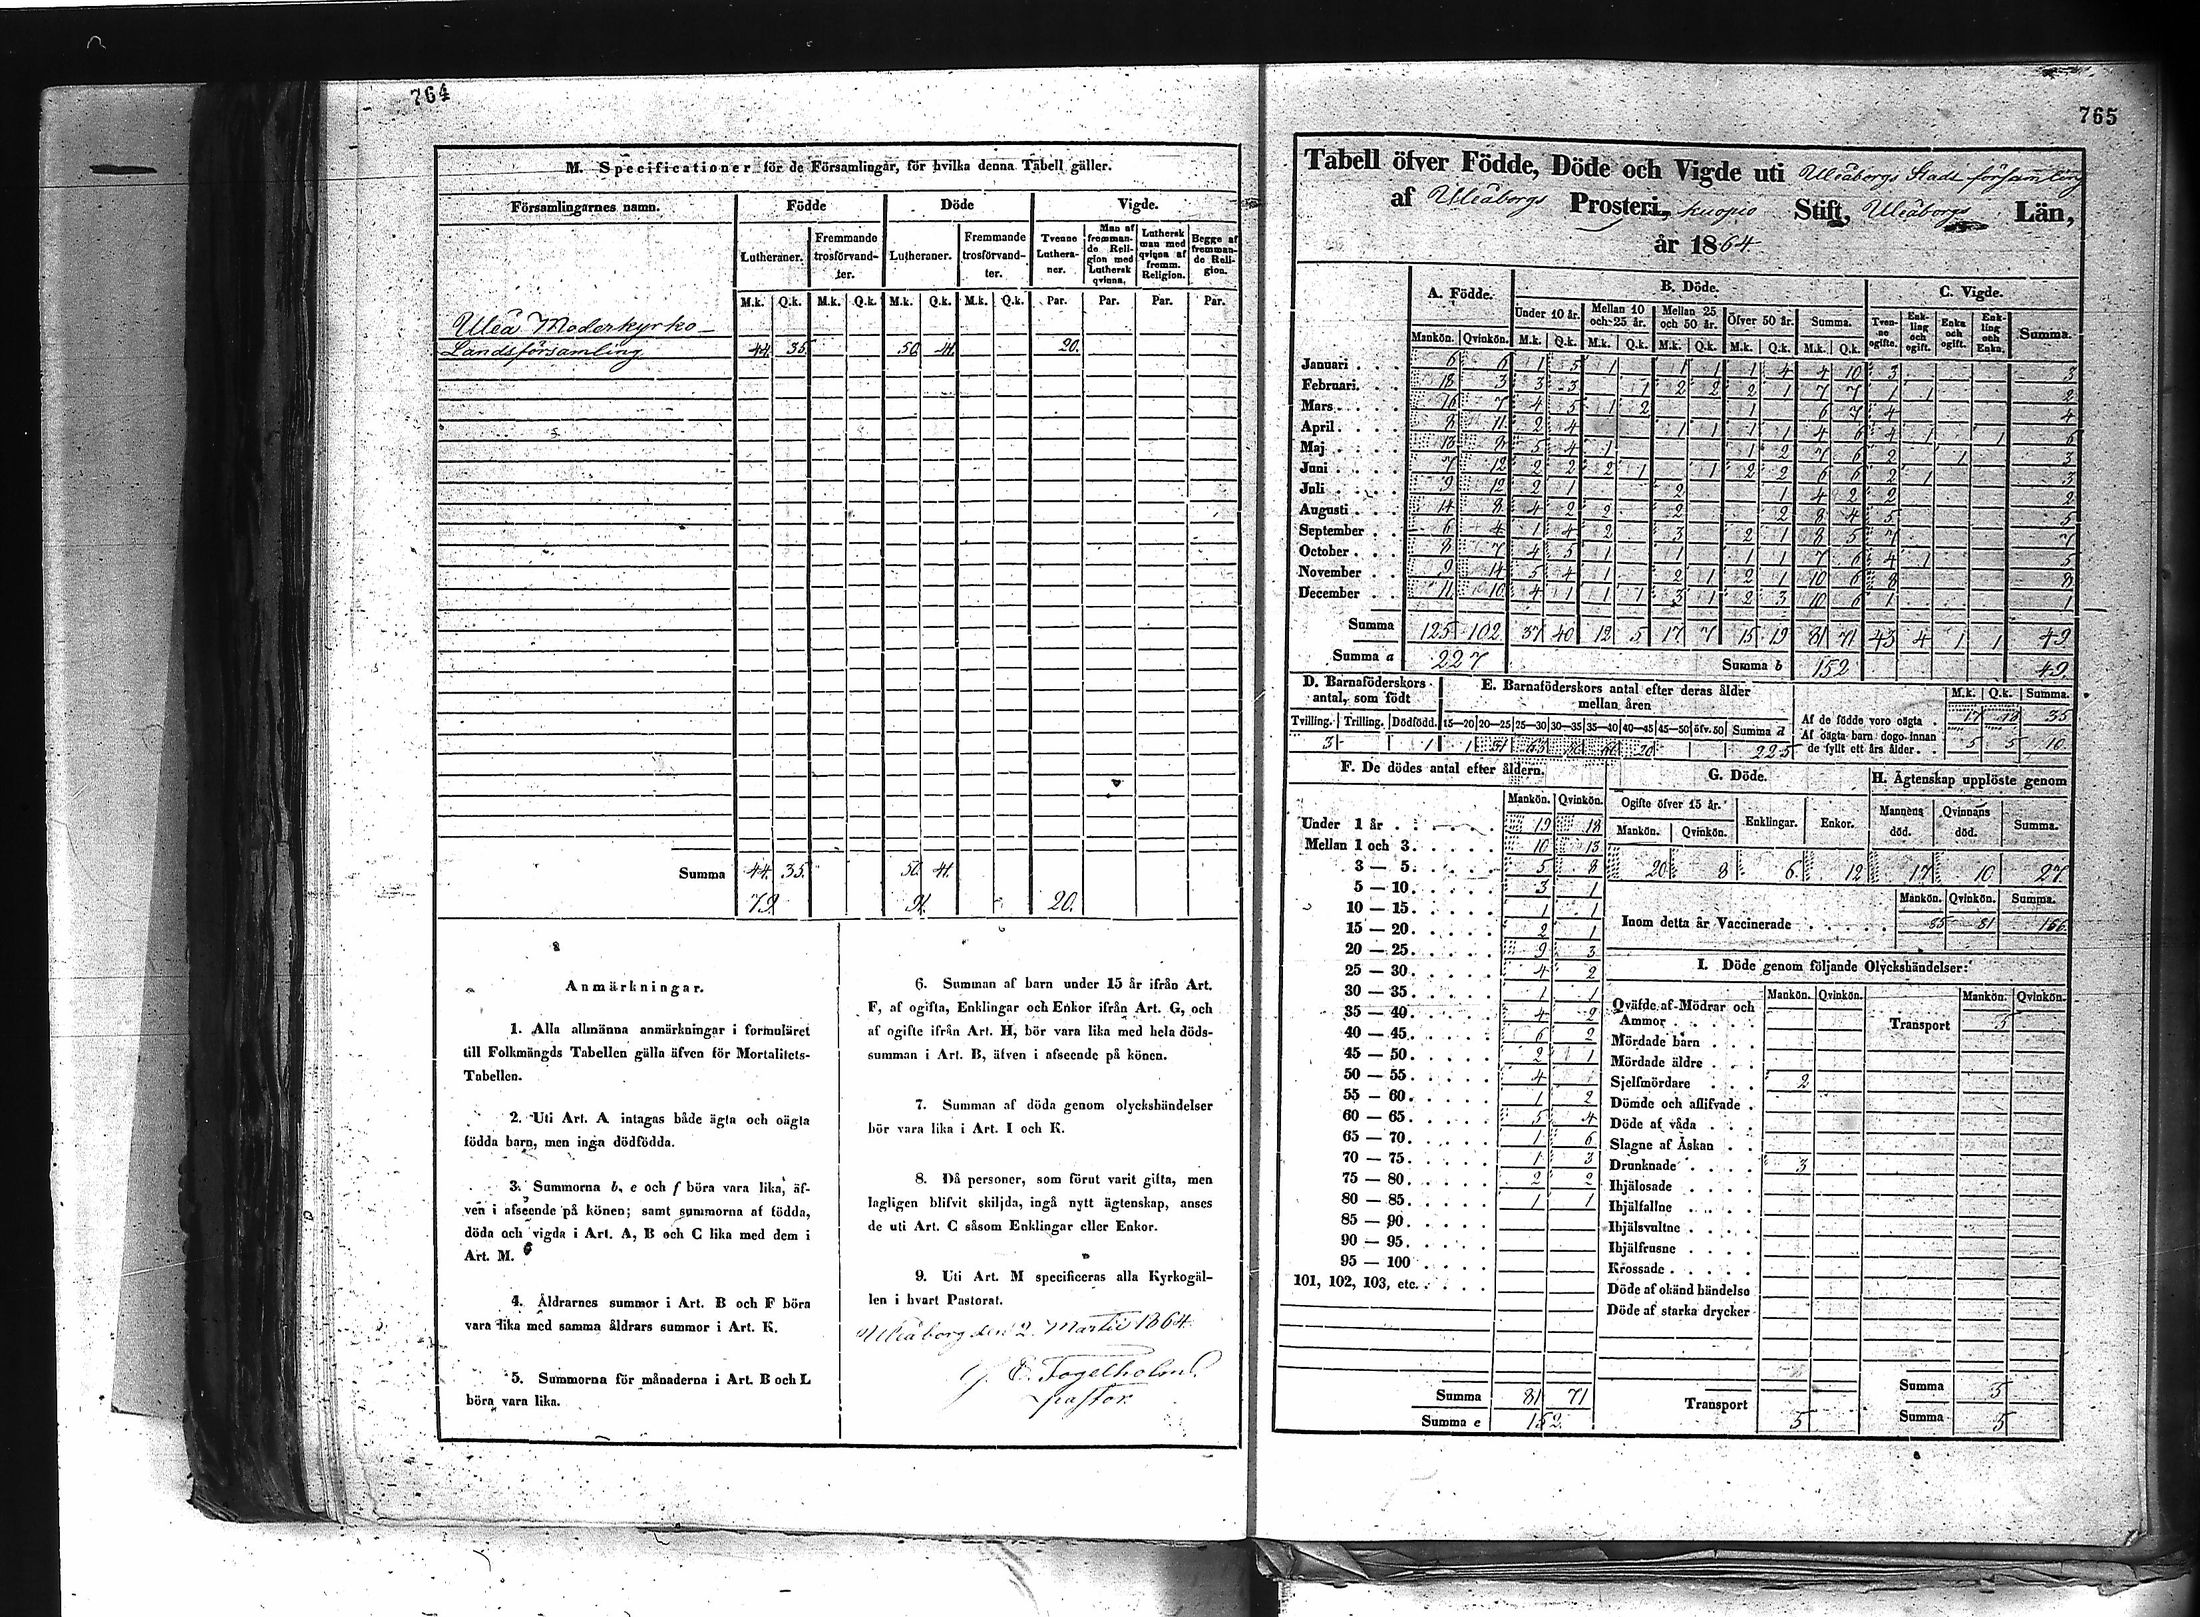 764
M. Specificationer för de Församlingar, för hvilka denna Tabell gäller.
Församlingarnes namn. Födde Döde Vigde.
Lutheraner. Fremmande trosförvandter. Lutheraner. Fremmande trosförvandter. Tvenne Lutheraner. Man af fremmande Religion med Luthersk qvinna. Luthersk man med qvinna af fremm. Religion. Begge af fremmande Religion.
M.k. Q.k. M.k. Q.k. M.k. Q.k. M.k. Q.k. Par. Par. Par. Par.
Uleå Moderkyrko-
Landsförsamling 44. 35. 50. 41. 20.
Summa 44. 35. 50. 41.
79. 91. 20.
Anmärkningar.
1. Alla allmänna anmärkningar i formuläret
till Folkmängds Tabellen gälla äfven för Mortalitets-
Tabellen.
2. Uti Art. A intagas både ägta och oägta
födda barn, men inga dödfödda.
3. Summorna b, e och f böra vara lika, äf-
ven i afseende på könen; samt summorna af födda,
döda och vigda i Art. A, B och C lika med dem i
Art. M.
4. Åldrarnes summor i Art. B och F böra
vara lika med samma åldrars summor i Art. K.
5. Summorna för månaderna i Art. B och L
böra vara lika.
6. Summan af barn under 15 år ifrån Art.
F, af ogifta, Enklingar och Enkor ifrån Art. G, och
af ogifte ifrån Art. H, bör vara lika med hela döds-
summan i Art. B, äfven i afseende på könen.
7. Summan af döda genom olyckshändelser
bör vara lika i Art. I och K.
8. Då personer, som förut varit gifta, men
lagligen blifvit skiljda, ingå nytt ägtenskap, anses
de uti Art. C såsom Enklingar eller Enkor.
9. Uti Art. M specificeras alla Kyrkogäl-
len i hvart Pastorat.
Uleåborg den 2 Martii 1864.
Fogelholm
pastor.
765
Tabell öfver Födde, Döde och Vigde uti Uleåborgs Stads församling
af Uleåborgs Prosteri, Kuopio Stift, Uleåborgs Län,
år 1864.
A. Födde. B. Döde. C. Vigde.
Under 10 år. Mellan 10 och 25 år. Mellan 25 och 50 år. Öfver 50 år. Summa. Tvenne ogifte. Enkling och ogift. Enka och ogift. Enkling och Enka. Summa.
Mankön. Qvinkön. M.k. Q.k. M.k. Q.k. M.k. Q.k. M.k. Q.k. M.k. Q.k.
Januari 6 6 1 5 1 1 1 1 4 4 10 3 3
Februari. 18 3 3 3 1 2 2 2 1 7 7 1 1 2
Mars 16 7 4 5 1 2 1 6 7 4 4
April. 8 11 2 4 1 1 1 1 4 6 4 1 1 6
Maj 13 9 5 4 1 1 2 7 6 2 1 3
Juni 7 12 2 2 2 1 1 2 2 6 6 2 1 3
Juli 9 12 2 1 2 1 4 2 2 2
Augusti 14 8 4 2 2 2 2 8 4 5 5
September 6 4 1 4 2 3 2 1 8 5 7 7
October 8 7 4 5 1 1 1 1 7 6 4 1 5
November 9 14 5 4 1 2 1 2 1 10 6 8 8
December 11 10 4 1 1 1 3 1 2 3 10 6 1 1
Summa 125 102 37 40 12 5 17 7 15 19 81 71 43 4 1 1 49
Summa a 227 Summa b 152 49.
D. Barnaföderskors antal, som födt
E. Barnaföderskors antal efter deras ålder mellan åren
M.k. Q.k. Summa.
Tvilling. Trilling. Dödfödd. 15—20 20—25 25—30 30—35 35—40 40—45 45—50 öfv. 50 Summa d
3 1 1 63 20 225
Af de födde voro oägta 17 18 35
Af oägta barn dogo innan de fyllt ett års ålder 5 5 10
F. De dödes antal efter åldern.
Mankön. Qvinkön.
Under 1 år 19 18
Mellan 1 och 3 10 13
3 — 5 5 8
5 — 10 3 1
10 — 15 1 1
15 — 20 2 1
20 — 25 9 3
25 — 30 4 2
30 — 35 1 1
35 — 40 4 2
40 — 45 6 2
45 — 50 2 1
50 — 55 4 1
55 — 60 1 2
60 — 65 5 4
65 — 70 1 6
70 — 75 1 3
75 — 80 2 2
80 — 85 1 1
85 — 90
90 — 95
95 — 100
101, 102, 103, etc.
Summa 81 71
Summa e 152.
G. Döde. H. Ägtenskap upplöste genom
Ogifte öfver 15 år. Enklingar. Enkor. Mannens död. Qvinnans död. Summa.
Mankön. Qvinkön.
20 8 6 12 17 10 27
Mankön. Qvinkön. Summa.
Inom detta år Vaccinerade 85 81 166
I. Döde genom följande Olyckshändelser:
Mankön. Qvinkön. Mankön. Qvinkön.
Qväfde af Mödrar och Ammor
Transport 5
Mördade barn
Mördade äldre
Sjelfmördare 2
Dömde och aflifvade
Döde af våda
Slagne af Åskan
Drunknade 3
Ihjälosade
Ihjälfallne
Ihjälsvultne
Ihjälfrusne
Krossade
Döde af okänd händelse
Döde af starka drycker
Summa 5
Transport 5 Summa 5